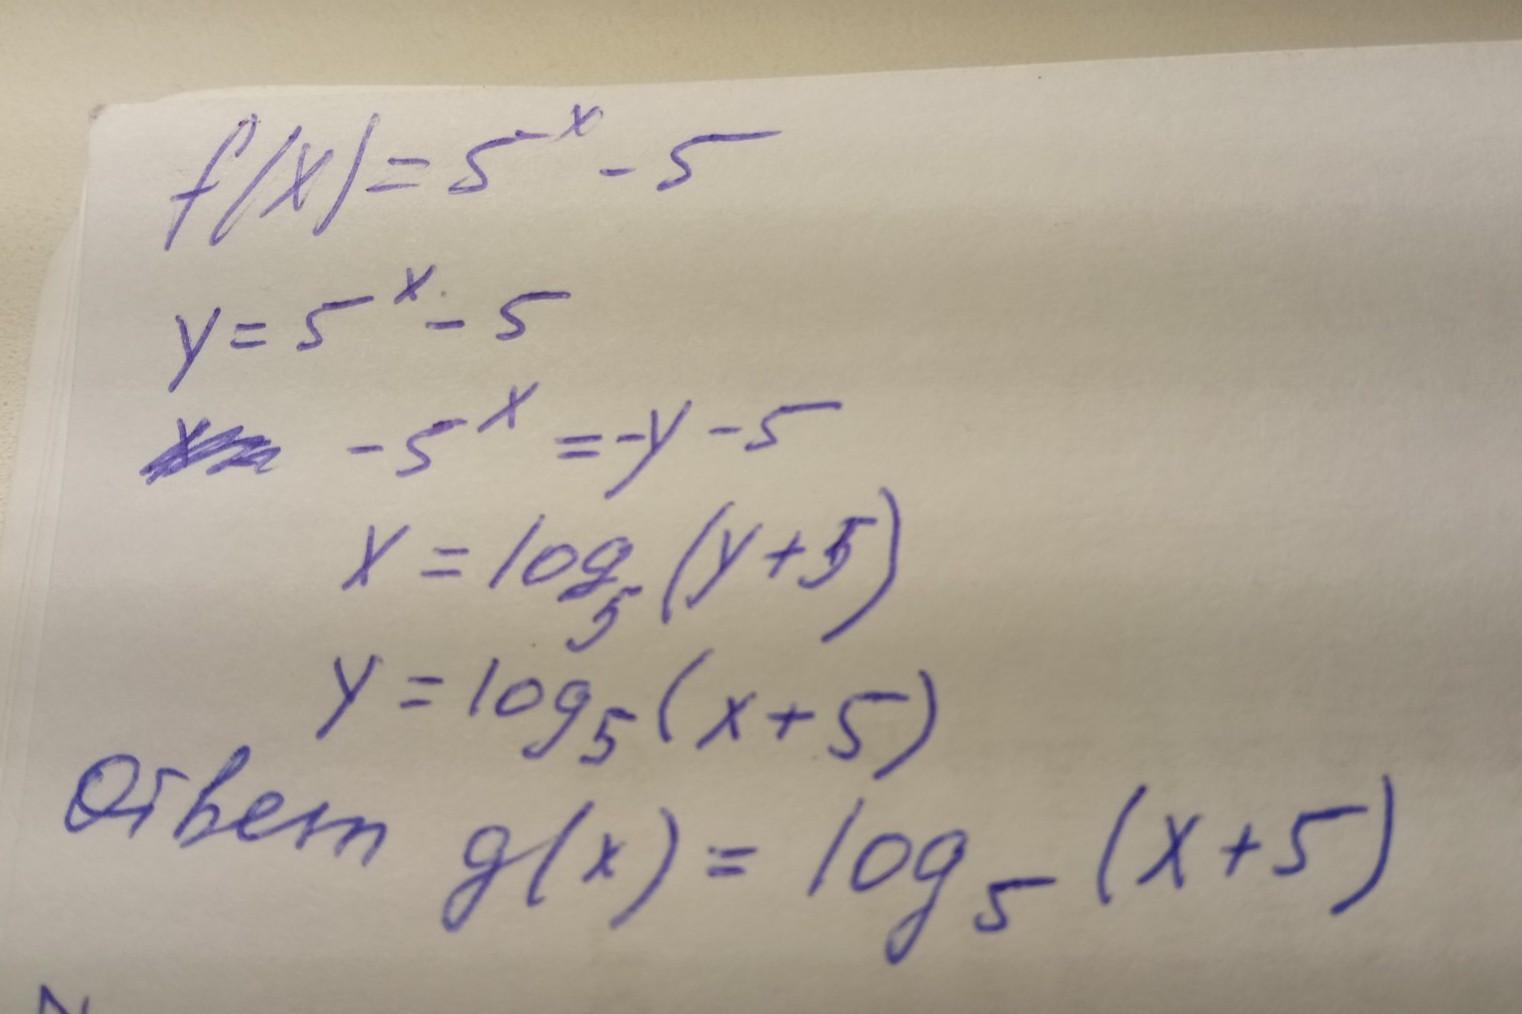 f(x) = 5^x - 5
y = 5^x - 5
-5^x = -y - 5
x = log_5 (y + 5)
y = log_5 (x + 5)
Ответ g(x) = log_5 (x + 5)